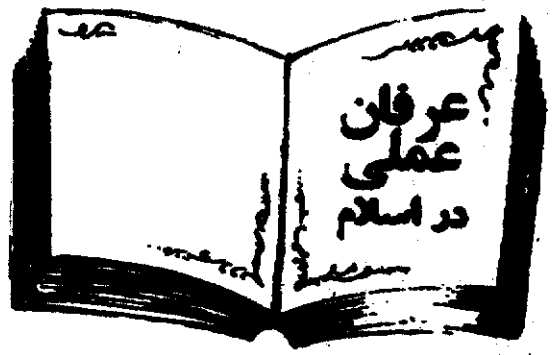 عرفان
عملی
در اسلام